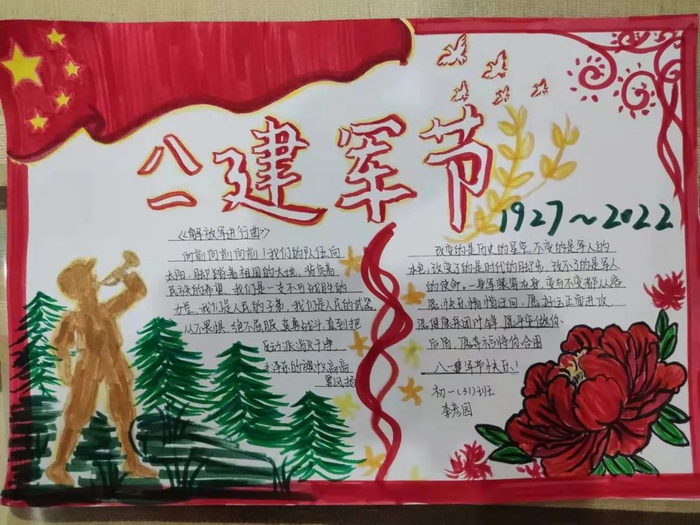 八一建军节
1927~2022
《解放军进行曲》
向前向前向前！我们的队伍向
太阳，脚踏着祖国的大地，背负着
民族的希望，我们是一支不可战胜的
力量，我们是人民的子弟，我们是人民的武装
从不畏惧，绝不屈服，英勇战斗，直到把
反动派消灭干净
毛泽东的旗帜高高
飘扬
改变的是历史的星空，不变的是军人的
本色，改变了的是时代的
的使命，一身
愿快乐
后盾，愿幸福将你合围
八一建军节快乐！
初一(31)班